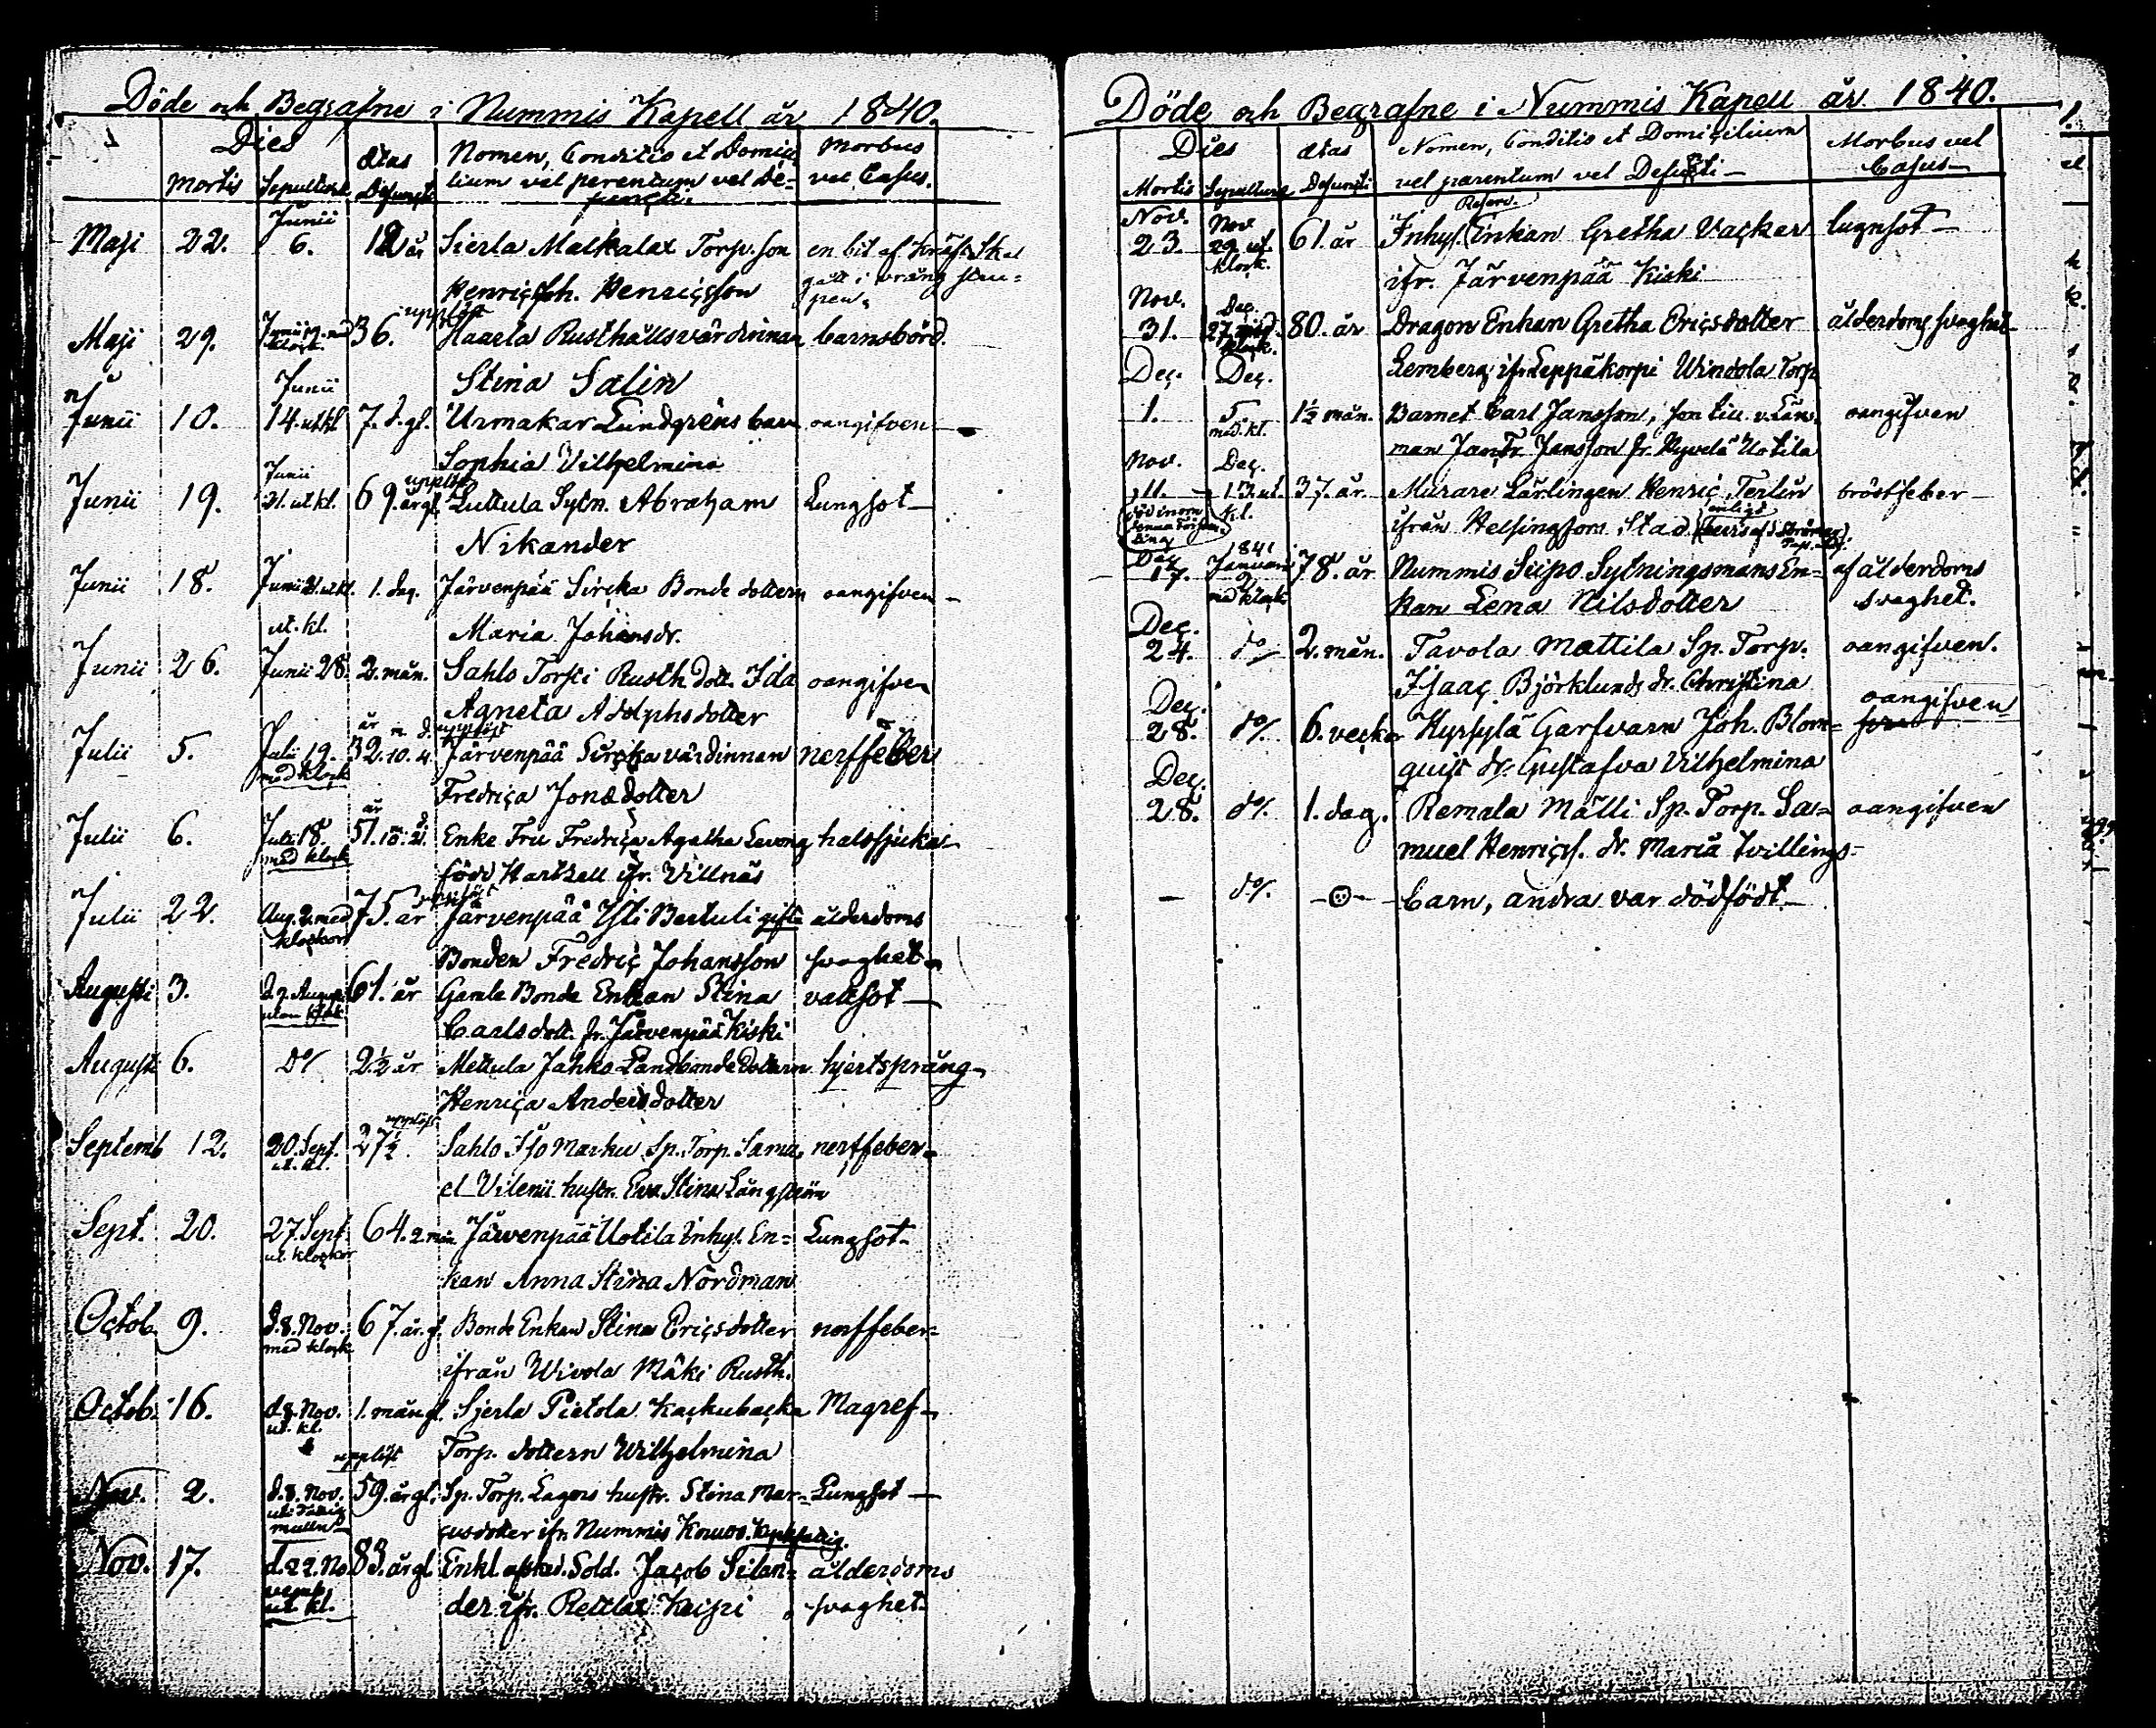 Döde och Begrafne i Nummis Kapell år 1840.
Dies
Mortis
Sepulturæ
Ætas Defuncti
Nomen, Conditio et Domici-
lium vel parentum vel De-
functi.
Morbus
vel Casus.
Maji 22. Junii 6. 12 år Sierla Matkalax Torp. son en bit af kräft skal
Henric Joh. Henricsson gått i vrång stru-
pen.
Maji 29. Junii 19. med klock. 36. upplöst Haarla Rusthålls värdinnan barnsbörd.
Stina Salin
Junii 10. Junii 14. ut. kl. 7. d. gl. Urmakar Lindgrens barn oangifven
Sophia Vilhelmina
Junii 19. Junii 21. ut. kl. 69. år gl. upplöst Luttula Sytn. Abraham Lungsot
Nikander
Junii 18. Junii 21. ut kl. 1. dag. Järvenpää Sirçka Bonde dottern oangifven
Maria Johansdr.
Junii 26. ut. kl. Junii 28. 2. mån. Sahlo Torsti Rusth. dott. Ida oangifven
Agneta Adolphsdotter
Julii 5. Julii 19. med klock 32. år 10. m. 4. d. upplöst Järvenpää Sirçka värdinnan nerffeber
Fredrica Jonædotter
Julii 6. Julii 18. med klock 51. år 10. m. 21. d. Enke Fru Fredrica Agatha Levong halssjuka
född Hartzell ifr. Villnäs
Julii 22. Aug. 2. med klockor 75. år Järvenpää Ysti Bertuli gifte ålderdoms
Bonden Fredric Johansson svaghet
Augusti 3. d. 9. Augusti utan klock 61. år Gamle Bonde Enkan Stina vattsot
Carlsdott. fr. Järvenpää Kiski
Augusti 6. do 2½ år Mettula Jahko Landbonde Dottern hjertsprång
Henrica Andersdotter
Septemb 12. 20. Sept. ut. kl. 27½. upplöst Sahlo Iso Marku Sp. Torp. Samu- nerffeber
el Vilenii hustr. Eva Stina Långström
Sept. 20. 27. Sept. ut. klockor 64. 2 mån. Järvenpää Uotila Inhys. En- Lungsot
kan Anna Stina Nordman
Octob. 9. d. 8. Nov. med klock 67. år. gl. Bonde Enkan Stina Ericsdotter nerffeber
ifrån Wivola Mäki Rusth.
Octob. 16. d. 8. Nov. ut. kl. 1. mån. gl. Sjerla Pietola Kackubacka Magref
Torp. dottern Wilhelmina
Nov. 2. d. 8. Nov. 59. år gl. upplöst Sp. Torp. Lagers hustr. Stina Mar- Lungsot
cusdotter ifr. Nummis
Nov. 17. d. 22. Novemb. ut. kl. 83. år gl. Enkl. afsked. Sold. Jacob Seilan- ålderdoms
der ifr. Retlax Keipi svaghet

Döde och Begrafne i Nummis Kapell år 1840.
Dies
Mortis
Sepulturæ
Ætas Defuncti
Nomen, Conditio et Domicilium
vel parentum vel Defuncti
Morbus vel
Casus
Nov. 23. Nov. 29. ut. klock. 61. år Inhys. Reserv. Enkan Gretha Vacker lugnsot
ifr. Järvenpää Kiski
Nov. 31. Dec. 27. med klock. 80. år Dragon Enkan Gretha Ericsdotter ålderdoms svaghet
Lemberg ifr. Leppäkorpi Windola Torp
Dec. 1. Dec. 5. med. kl. 1½ mån. Barnet Carl Jansson, son till v. Län. oangifven
man Jansson fr. Hyvelä Uotila
Nov. 11. Dec. 13. ut. kl. 37. år Murare Lärlingen Henric Terlin bröstfeber
ifrån Helsingfors Stad enligt
Dec. 17. 1841 Januari 2 med klock 78. år Nummis Seipo Sytningsmans En- af ålderdoms
kan Lena Nilsdotter svaghet.
Dec. 24. do 2. mån. Tavola Mattila Sp. Torp. oangifven.
Isaac Björklunds dr. Christina
Dec. 28. do. 6. veckor Hyrsylä Garfvarn Joh. Blom- oangifven
quist dr. Gustafva Vilhelmina
Dec. 28. do. 1. dag. Remala Mälli Sp. Torp. Sa- oangifven
muel Henrics. dr. Maria tvillings-
— do. — barn, andra var dödfödt